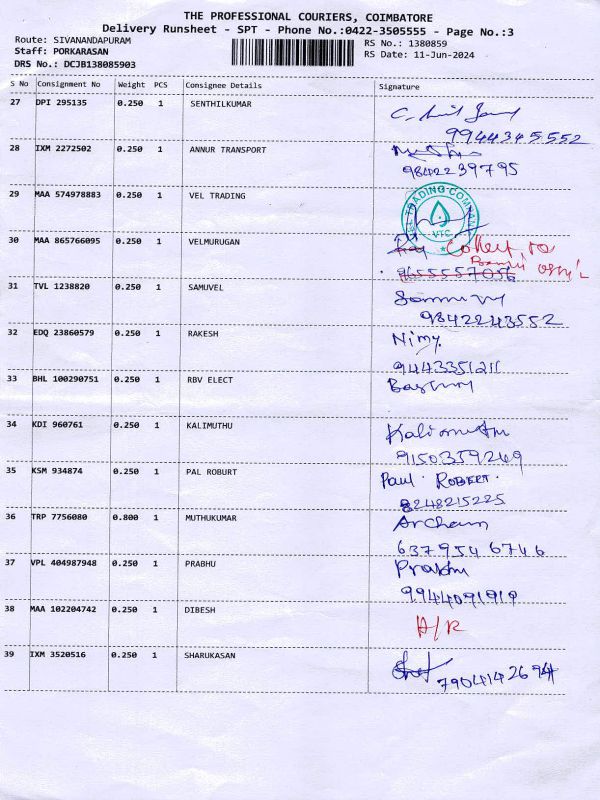 THE PROFESSIONAL COURIERS, COIMBATORE
Delivery Runsheet - SPT - Phone No.:0422-3505555 - Page No.:3
Route: SIVANANDAPURAM
RS No.: 1380859
Staff: PORKARASAN
RS Date: 11-Jun-2024
DRS No.: DCJB138085903
S No Consignment No Weight PCS Consignee Details Signature
27 DPI 295135 0.250 1 SENTHILKUMAR
9944345552
28 IXM 2272502 0.250 1 ANNUR TRANSPORT
9842239795
29 MAA 574978883 0.250 1 VEL TRADING
TRADING COMPANY
VTC
30 MAA 865766095 0.250 1 VELMURUGAN
Collect to
9655557056
31 TVL 1238820 0.250 1 SAMUVEL
9842243552
32 EDQ 23860579 0.250 1 RAKESH Nimy
9443351211
33 BHL 100290751 0.250 1 RBV ELECT
34 KDI 960761 0.250 1 KALIMUTHU
9150359249
35 KSM 934874 0.250 1 PAL ROBURT Paul. ROBERT.
8248215225
36 TRP 7756080 0.800 1 MUTHUKUMAR
6379546746
37 VPL 404987948 0.250 1 PRABHU Prabhu
9944091919
38 MAA 102204742 0.250 1 DIBESH
D/R
39 IXM 3520516 0.250 1 SHARUKASAN
7904142694